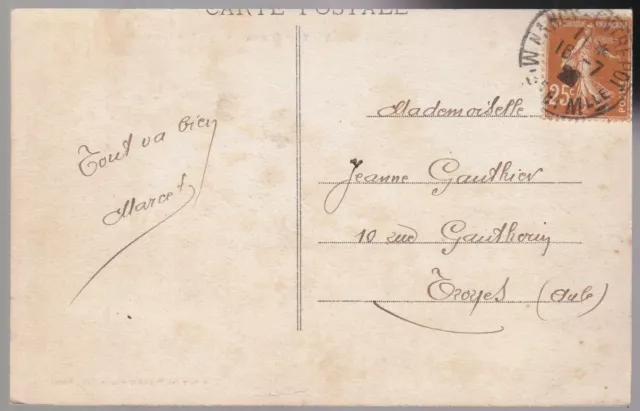 CARTE POSTALE
Tout va bien
Marcel
Mademoiselle
Jeanne Gauthier
10 rue Gautherin
Troyes (Aube)
25c